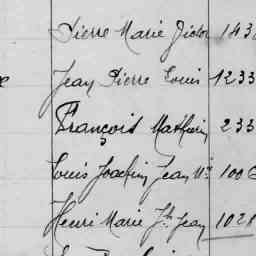 Pierre Marie Victor 143
Jean Pierre Louis 1233
François Mathurin 233
Louis Joachim Jean Mie 100
Henri Marie Jh Jean 1021